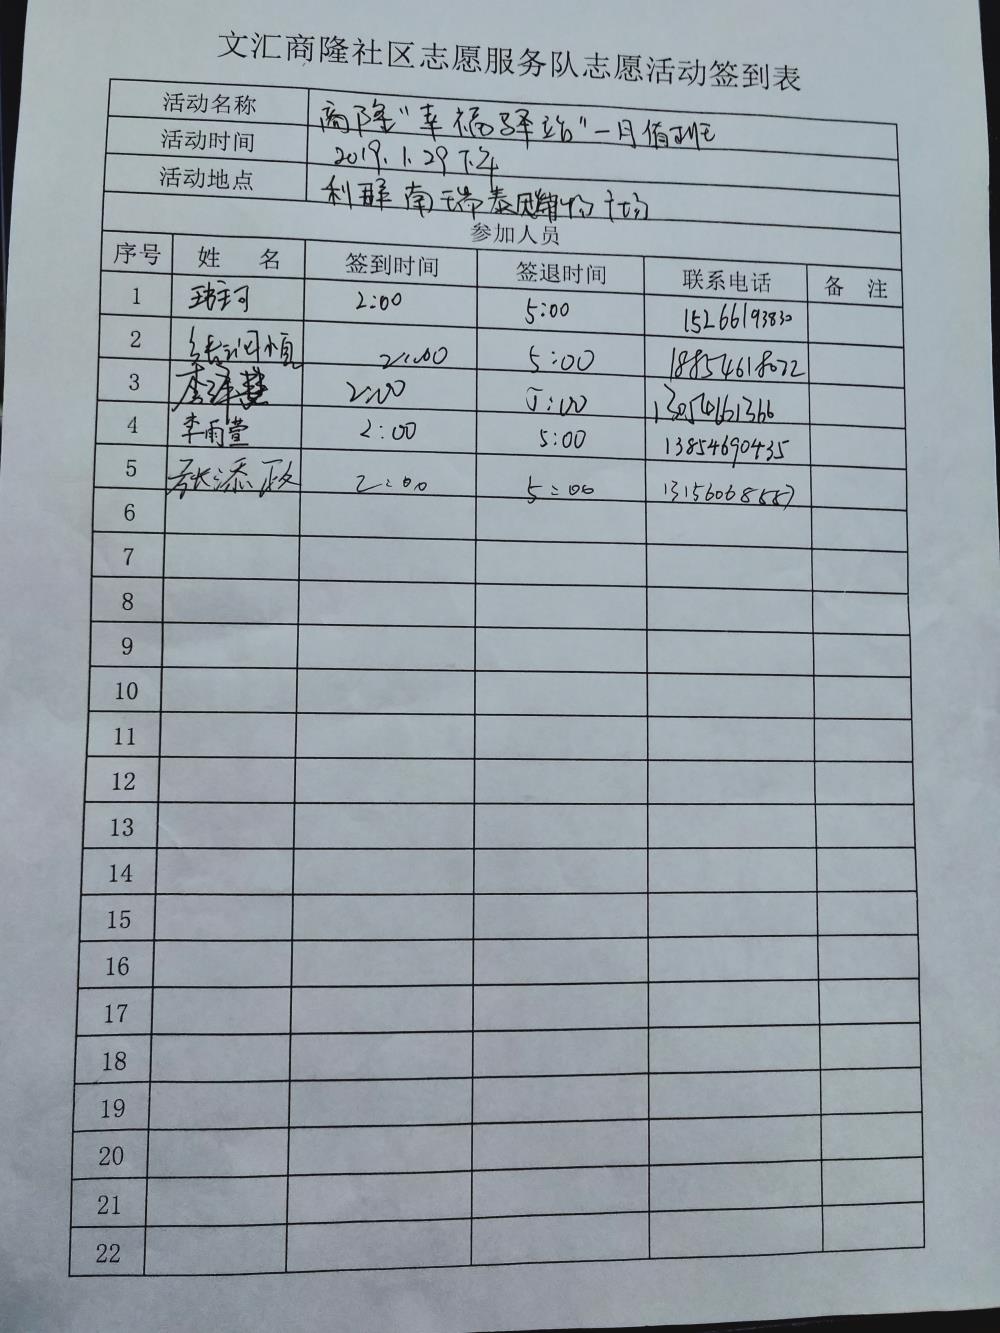 文汇商隆社区志愿服务队志愿活动签到表
活动名称 商隆"幸福驿站"一月值班
活动时间 2019.1.29下午
活动地点 利群南瑞泰购物广场
参加人员
序号 姓 名 签到时间 签退时间 联系电话 备 注
1 2:00 5:00 15266193830
2 2:00 5:00 18854618022
3 2:00 5:00
4 李雨萱 2:00 5:00 13854690435
5 张添政 2:00 5:00
6
7
8
9
10
11
12
13
14
15
16
17
18
19
20
21
22